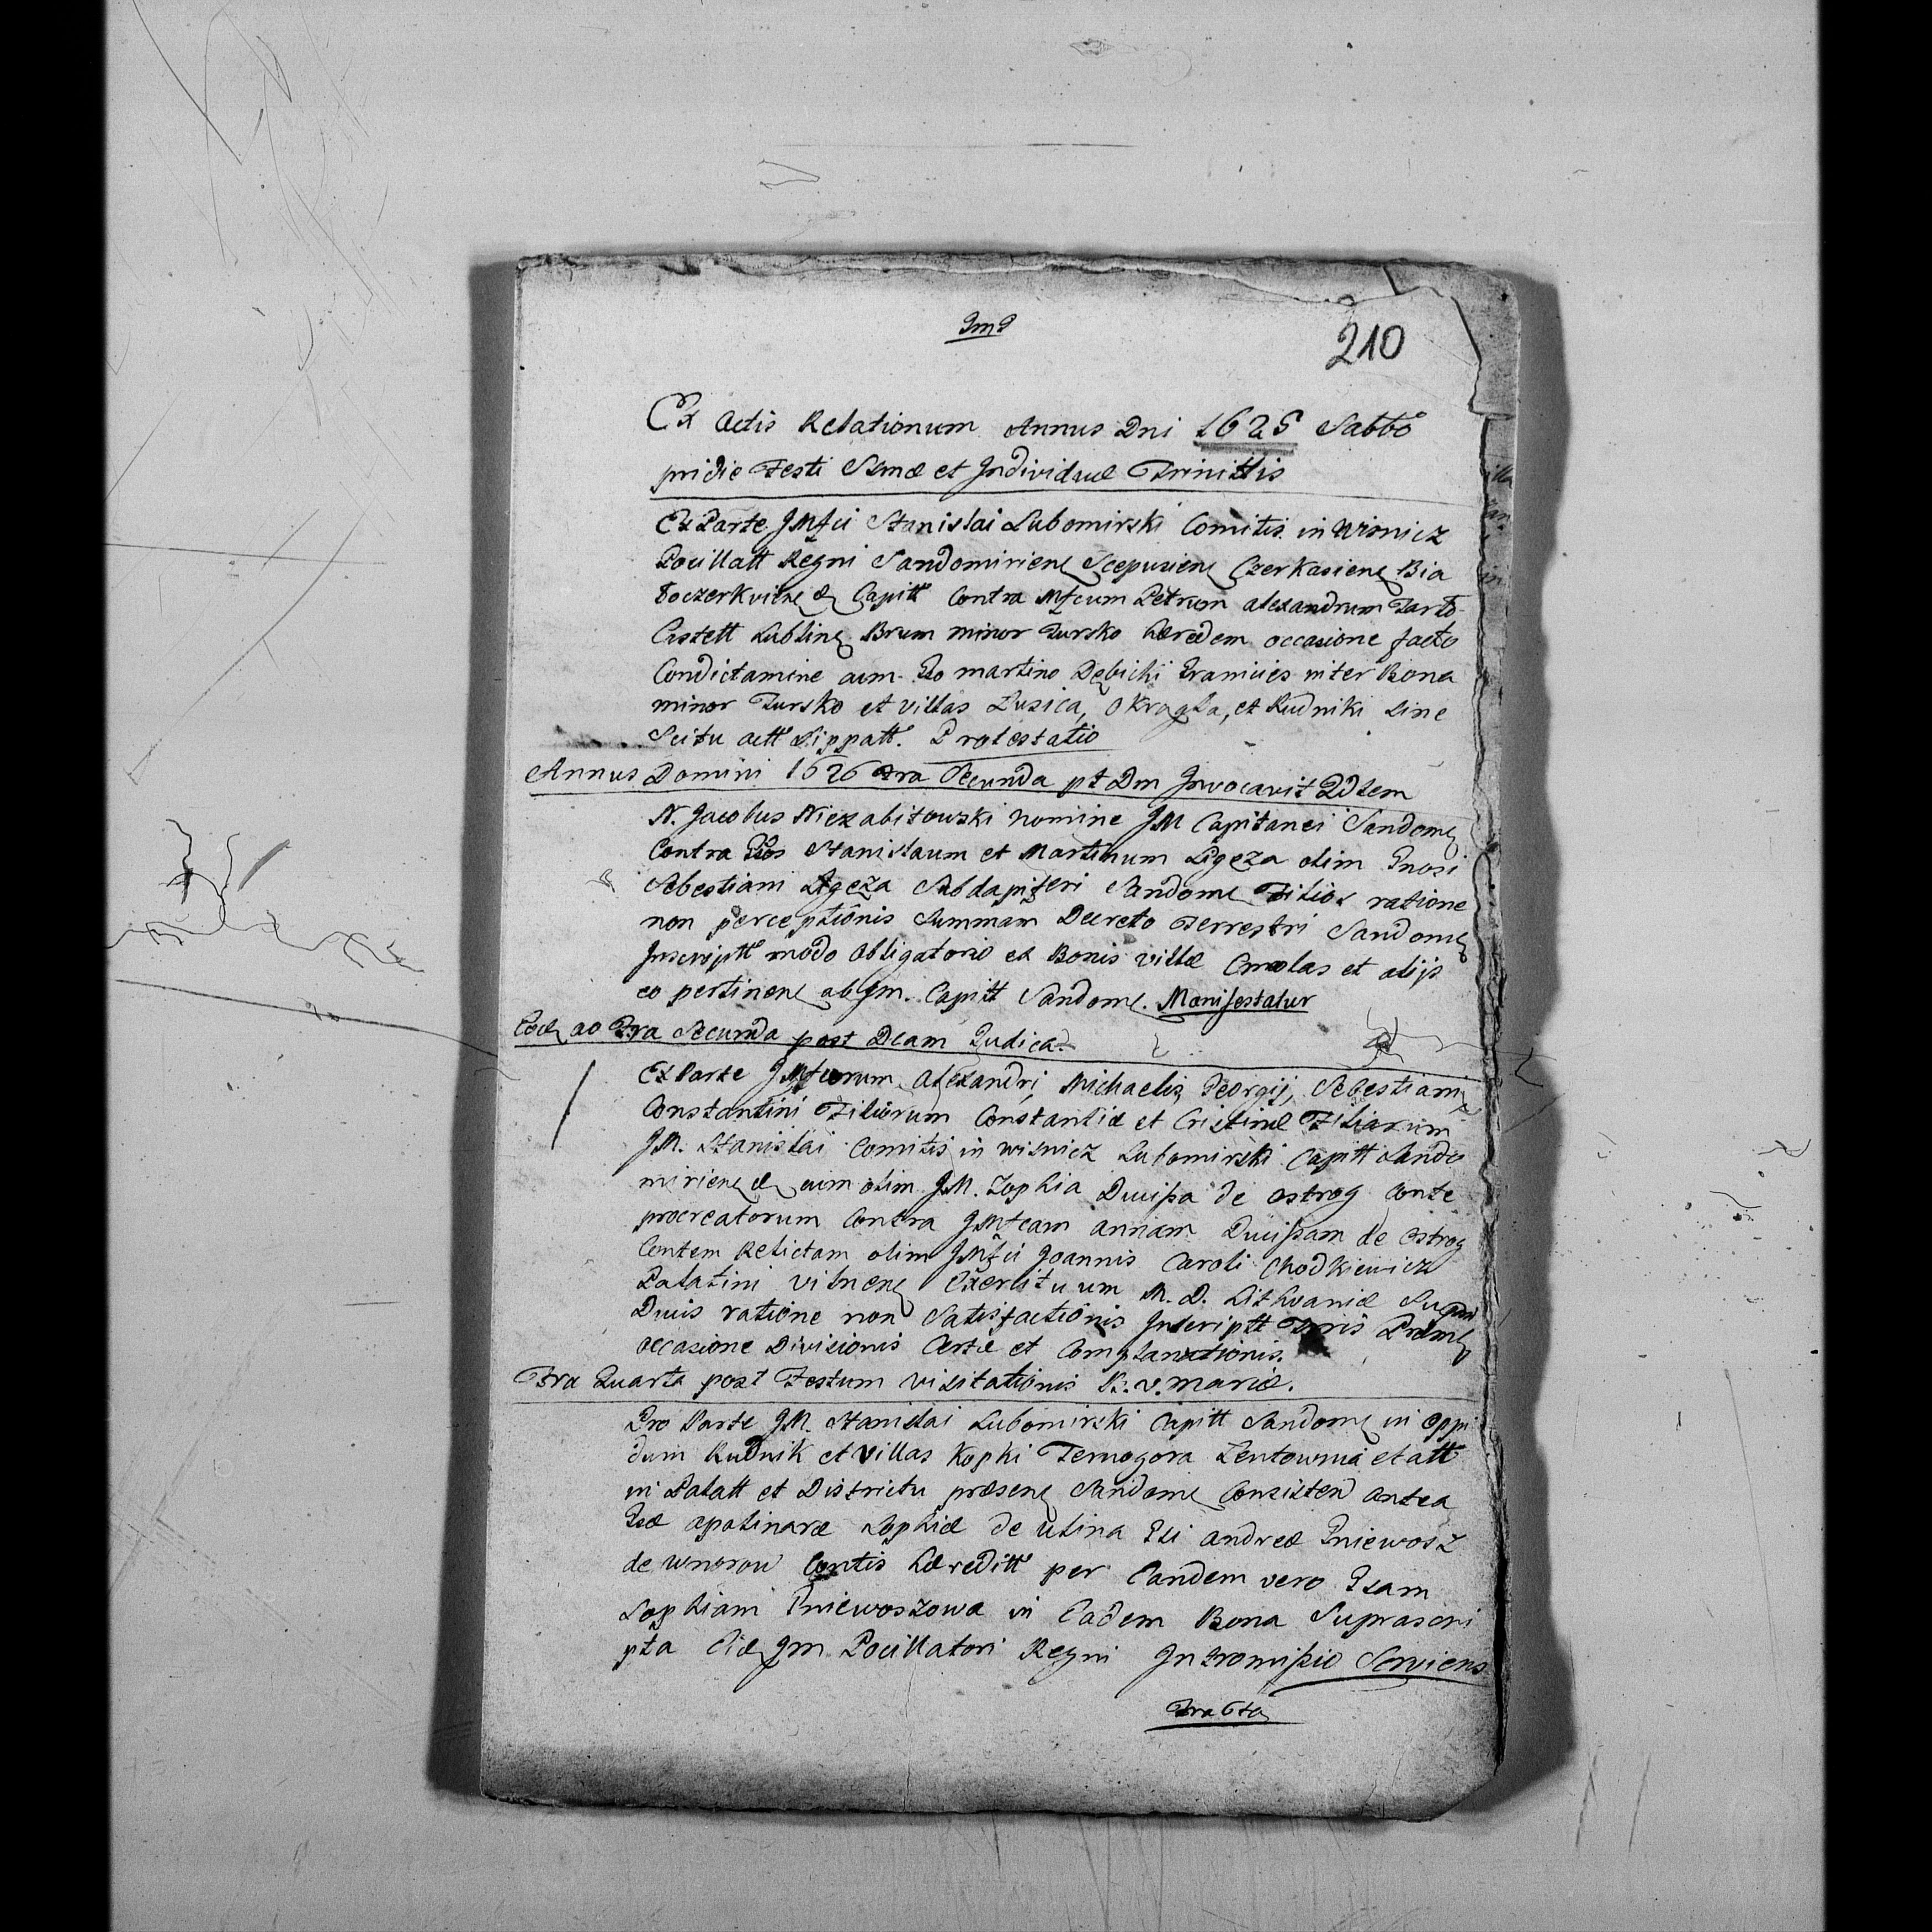 210
Ex Actis Relationum Annus Dni 1625 Sabbo
pridie Festi Smæ et Individuæ Trinittis
Ex Parte JMfci Stanislai Lubomirski Comitis in Wisnicz
Pocillatt Regni Sandomiriens Scepusiens Czerkasiens Bia
łoczerkviens & Capitt Contra Mfcum Petrum Alexandrum Tarło
Castell Lublins Brum minor Tursko hæredem occasione facto
Condictamine cum Gso Martino Dębicki Granicies inter Bona
minor Tursko et villas Luzica, Okrągła, et Rudniki sine
Scitu actt Protestatio
Annus Domini 1626 Fra Secunda pt Dm Invocavit Qdlem
N. Jacobus Niezabitowski nomine JM Capitanei Sandoms
Contra Gsos Stanislaum et Martinum Ligęza olim Gnosi
Sebestiani Ligęza Subdapiferi Sandoms Filios ratione
non perceptionis Summam Decreto Terrestri Sandoms
Inscriptt modo obligatorio ex Bonis villæ Cmolas et alijs
eo pertinens ab Jm. Capitt Sandoms. Manifestatur
Eods ao Fra Secunda post Dcam Judica
Ex Parte JMfcorum Alexandri, Michaelis Georgij, Sebestiani
Constantini Filiorum Constantiæ et Cristinæ Filiarum
JM. Stanislai Comitis in Wisnicz Lubomirski Capitt Sando
miriens & cum olim JM. Zophia Ducissa de Ostrog Conte
procreatorum Contra JMfcam Annam Ducissam de Ostrog
Contem Relictam olim JMfci Joannis Caroli Chodkiewicz
Palatini Vilnens Exercituum M. D. Lithvaniæ Supmi
Ducis ratione non Satisfactionis Inscriptt
occasione Divisionis Certæ et Complanationis.
Fra Quarta post Festum Visitationis B. V. Mariæ.
Pro Parte JM. Stanislai Lubomirski Capitt Sandoms in Oppi
dum Rudnik et Villas Kopki Ternogora Zentownia et att
in Palatt et Districtu præsens Sandoms Consisten antea
Gsæ Apolinaræ Sophiæ de Ulina Gsi Andreæ Gniewosz
de Wnorow Contis hæreditt per Eandem vero Gsam
Sophiam Gniewoszowa in Eadem Bona Suprascri
pta Eids Jm Pocillatori Regni Intromissio Serviens
Fra 6ta